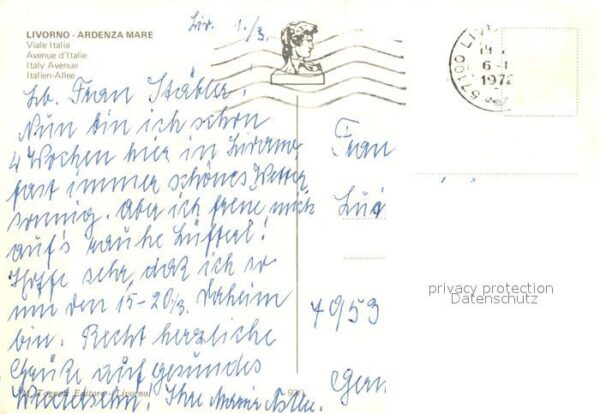 LIVORNO - ARDENZA MARE
Viale Italia
Avenue d'Italie
Italy Avenue
Italien-Allee
Liv. 1./3.
57100 LIV
19-
6-
1972
Lb. Frau Stäbler.
Nun bin ich schon
4 Wochen hier in Livorno
fast immer schönes Wetter
sonnig. Aber ich freue mich
auf's rauhe Lüfterl!
Hoffe sehr daß ich so
um den 15-20./3. daheim
bin. Recht herzliche
Grüße auf gesundes
Wiedersehn! Ihre Maria
Frau
Lui
4953
Ger
privacy protection
Datenschutz
Editore Livorno